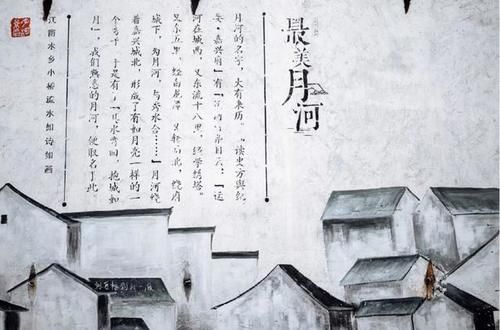 最美月河
月河的名字,大有来历。《读史方舆纪
要·嘉兴府》有 条目云:“运
河在城西,又东流十八里,经学绣塔。
又东五里,经白龙潭,又转而北,绕府
城下,为月河,与秀水合……”月河绕
着嘉兴城北,形成了有如月亮一样的一
个弯子,于是有了“其水弯曲,抱城如
月”。我们熟悉的月河,便取名于此。
江南水乡小桥流水如诗如画